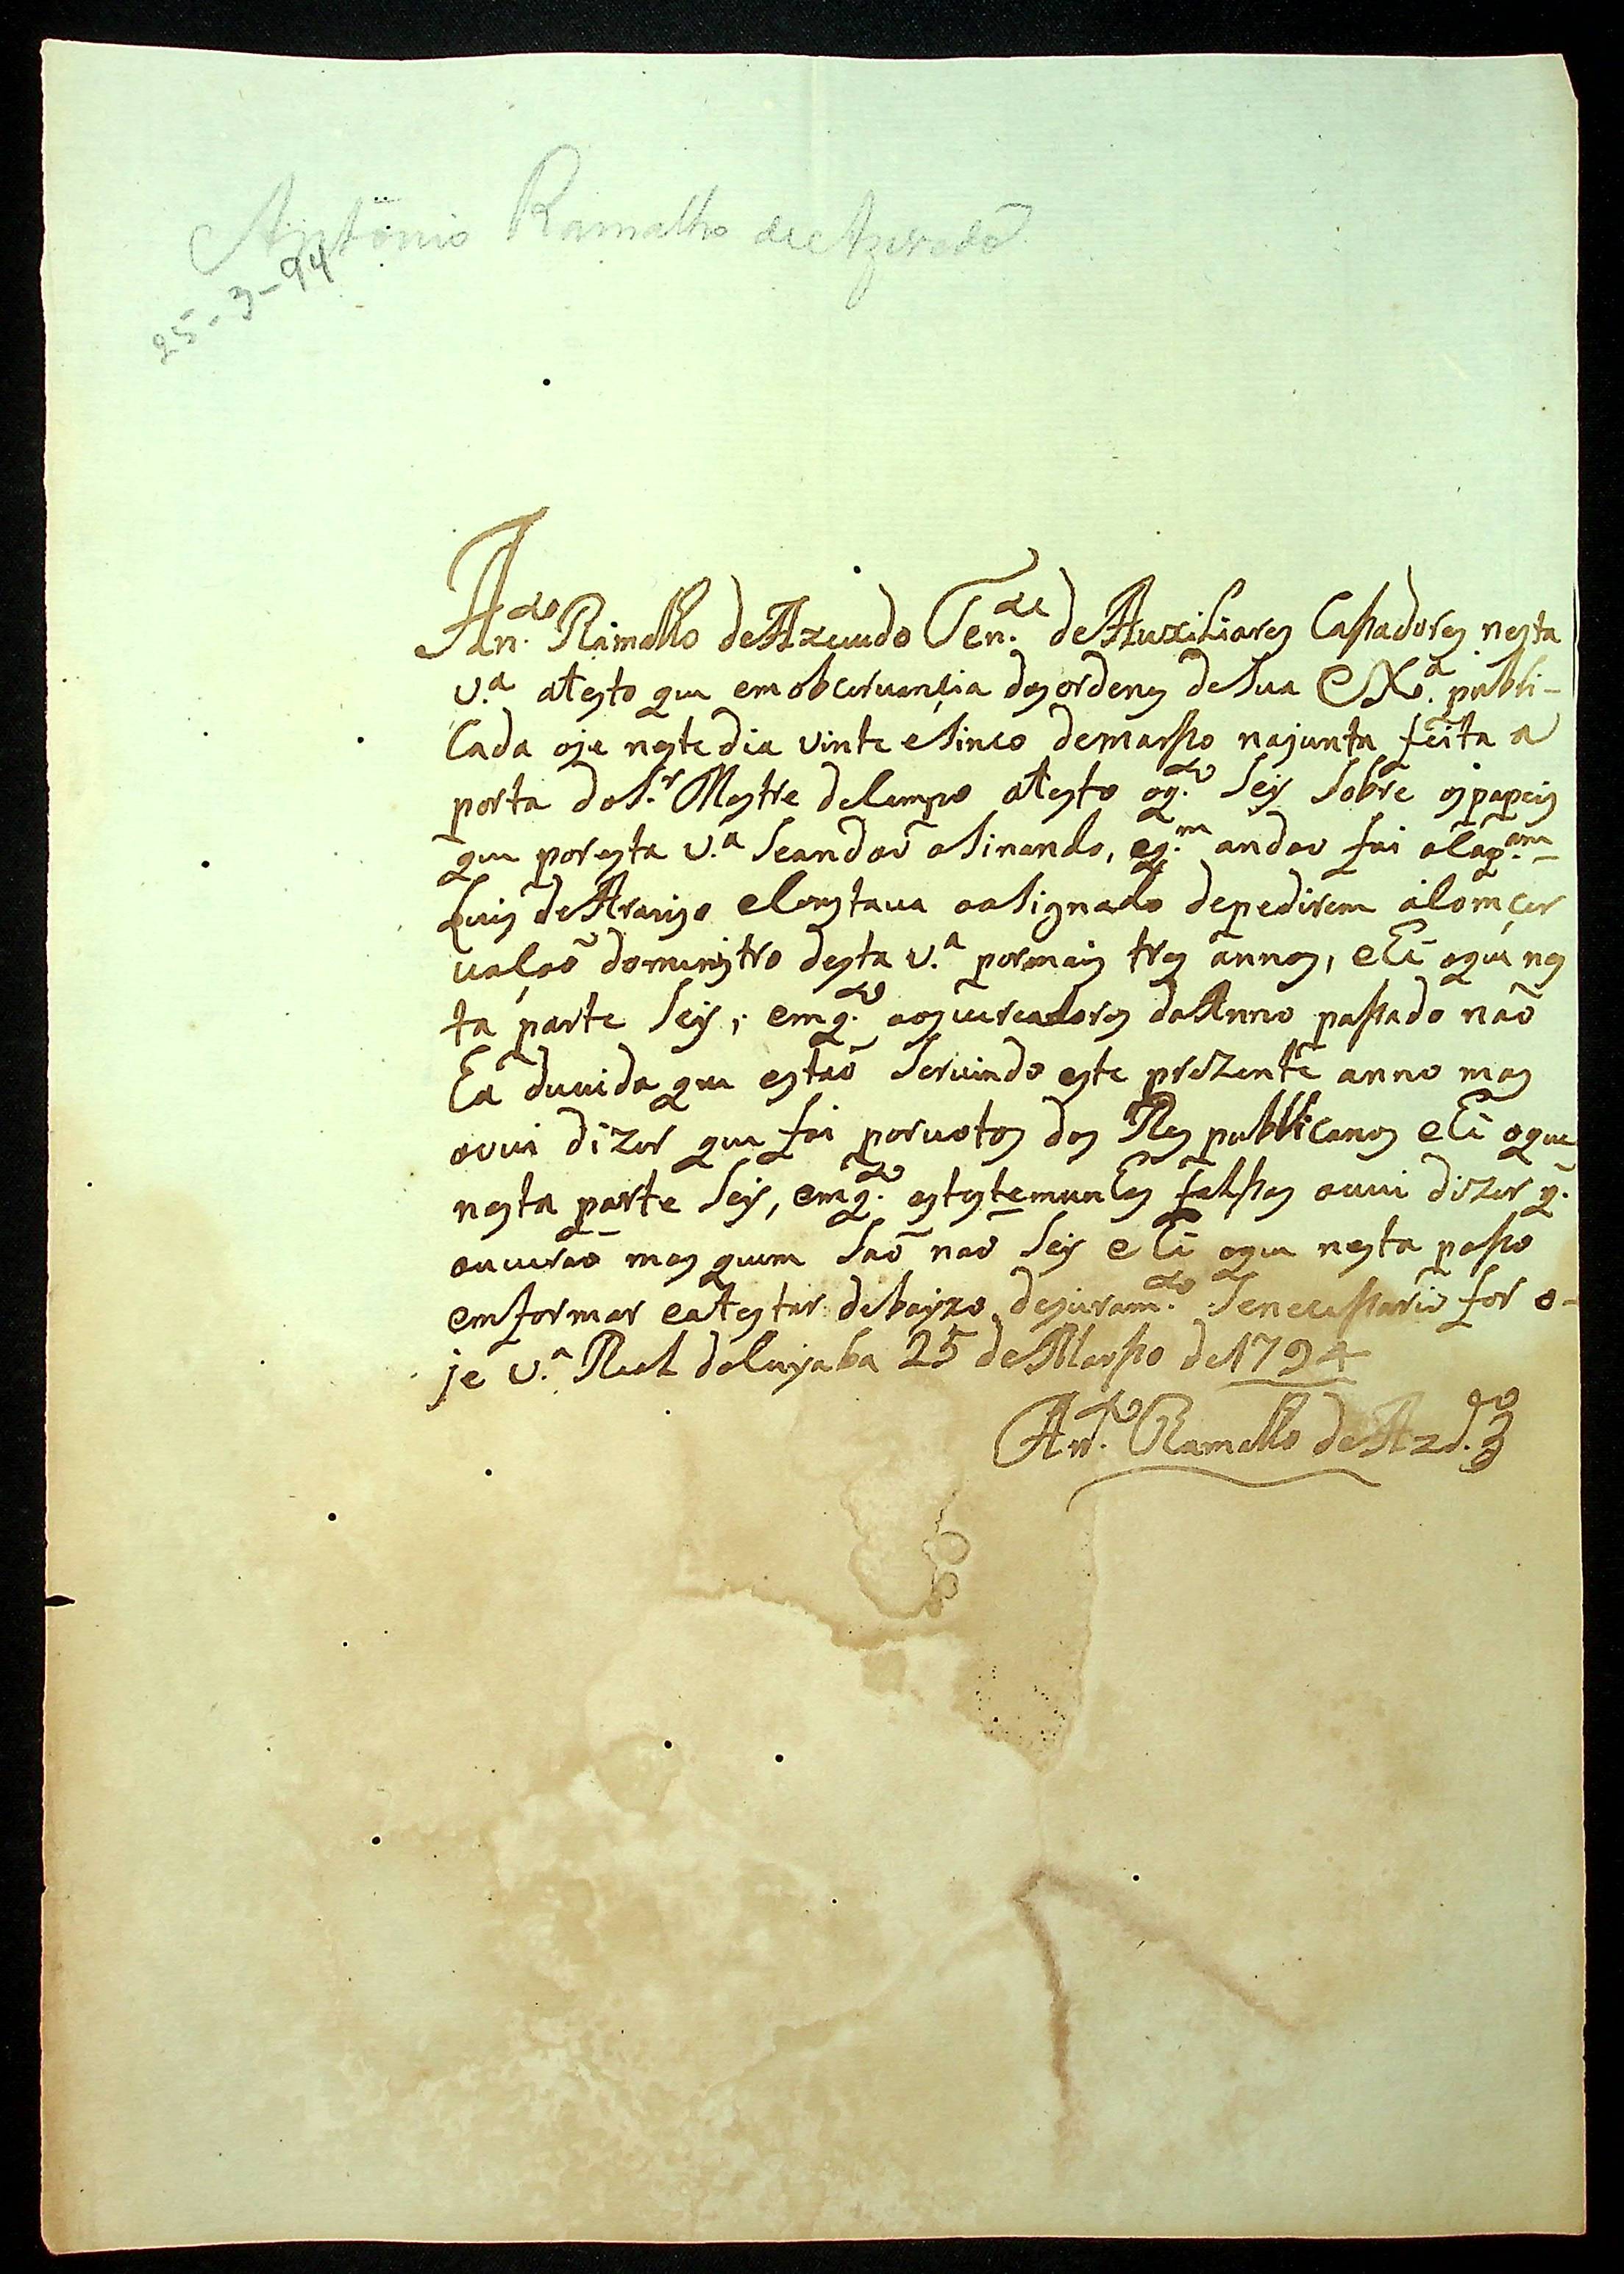 Antonio Ramalho de Azevedo
25-3-94
An.to Ramalho de Azevedo Ten.te de Auxiliares Cassadores nesta
v.a atesto que em obcervançia das ordens de Sua EX.a publi-
Cada oje neste dia vinte e Sinco de marsso na junta feita a
porta do S.r Mestre de Campo atesto o q.to Sey Sobre os papeis
que por esta v.a Se andaõ aSinando, e q.m andou foi o Cap.am
Luis de Araujo e Constava o aSignado de pedirem a Comçer
vaçaõ do menistro desta v.a por mais tres annos, e hé o que nes
ta parte Sey; em q.to aos vereadores do Anno passado naõ
há duvida que estaõ Servindo este prezente anno mas
ouvi dizer que foi por votos dos Res publicanos e hé o que
nesta parte Sey, em q.to as testemunhas falssas ouvi dizer q.
ouveraõ mas quem Saõ naõ Sey e hé o que nesta posso
emformar e atestar debayxo de juram.to Se necessario for o-
je v.a Real do Cuyaba 25 de Marsso de 1794
An.to Ramalho de Azd.o